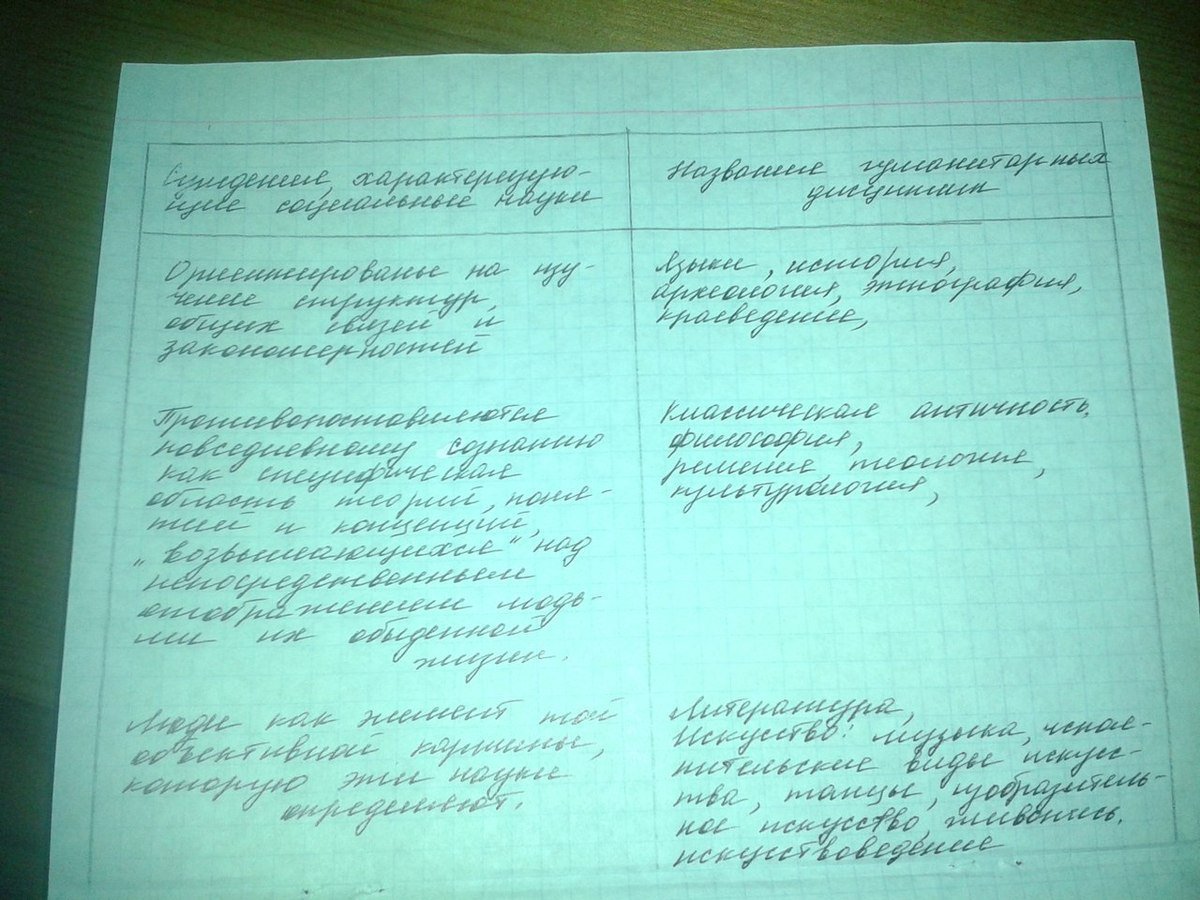 Суждение, характеризую-
щие социальные науки
Название гуманитарных
дисциплин
Ориентированые на изу-
чение структур,
общих связей и
закономерностей
Языки, история,
археология, этнография,
краеведение,
Противопоставляются
повседневному сознанию
как специфическая
область теорий, поня-
тий и концепций,
"возвышающихся" над
непосредственным
отображением людь-
ми их обыденной
жизни.
Классическая античность,
философия,
религия, теология,
культурология,
Люди как элемент той
объективной картины,
которую эти науки
определяют.
Литература,
Искусство: музыка, испол-
нительские виды искус-
тва, танцы, изобразитель-
ное искусство, живопись,
искусствоведение